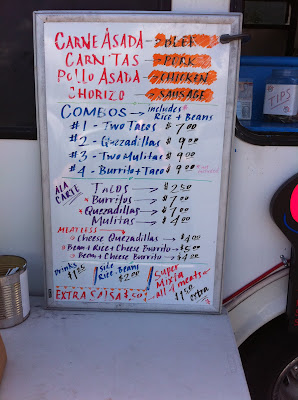 CARNE ASADA → BEEF
CARNITAS → PORK
POLLO ASADA → CHICKEN
CHORIZO → SAUSAGE
COMBOS → includes Rice + Beans
#1 - Two Tacos $7.00
#2 - Quezadillas $9.00
#3 - Two Mulitas $9.00
#4 - Burrito + Taco $9.00
ALA CARTE
Tacos $2.50
Burritos $7.00
Quezadillas $7.00
Mulitas $4.00
MEATLESS
Cheese Quezadillas → $4.00
Bean + Rice + Cheese Burrito → $5.00
Bean + Cheese Burrito → $4.00
Drinks $1.50
Side Rice-Beans $2.00
Super Mixta all 4 meats $1.50 extra
EXTRA SALSA $.50¢
TIPS